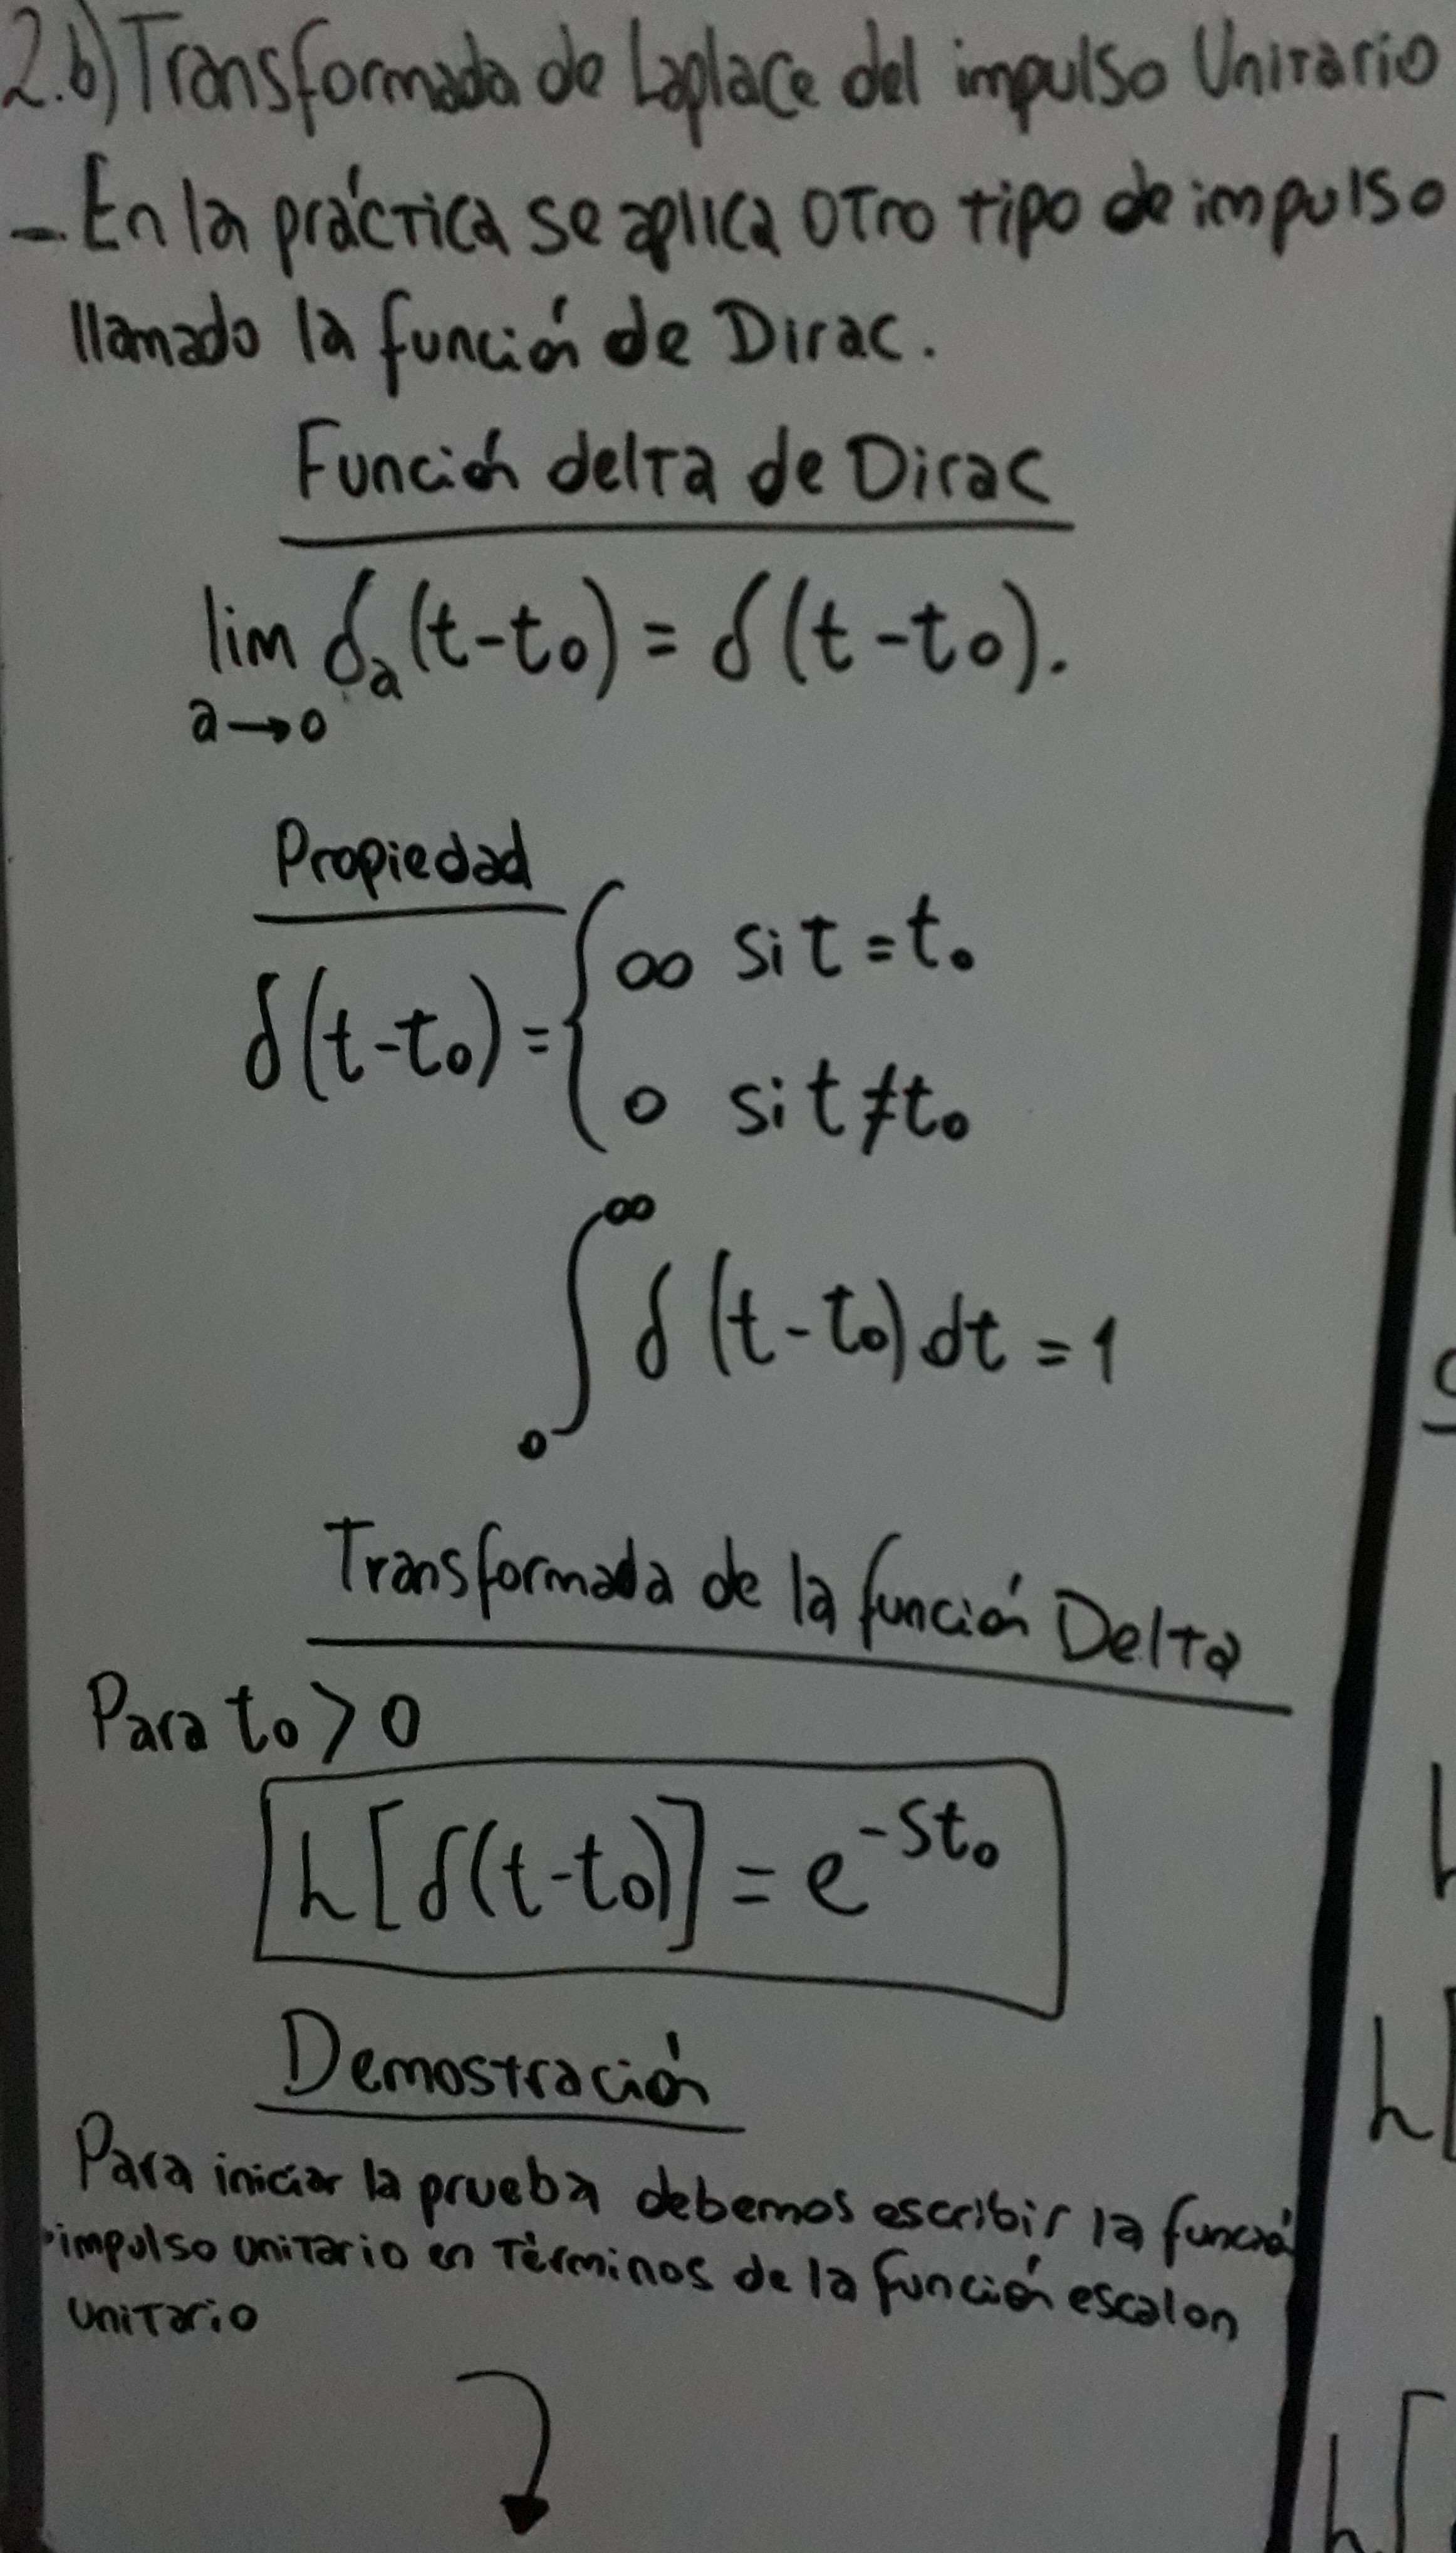 2.b) Transformada de Laplace del impulso Unitario
- En la práctica se aplica otro tipo de impulso
llamado la función de Dirac.
Función delta de Dirac
lim δa(t-to) = δ(t-to).
a→0
Propiedad
δ(t-to) = { ∞ si t = to
0 si t ≠ to
∫₀^∞ δ(t-to)dt = 1
Transformada de la función Delta
Para to > 0
h[δ(t-to)] = e^-Sto
Demostración
Para iniciar la prueba debemos escribir la función
impulso unitario en términos de la función escalon
unitario